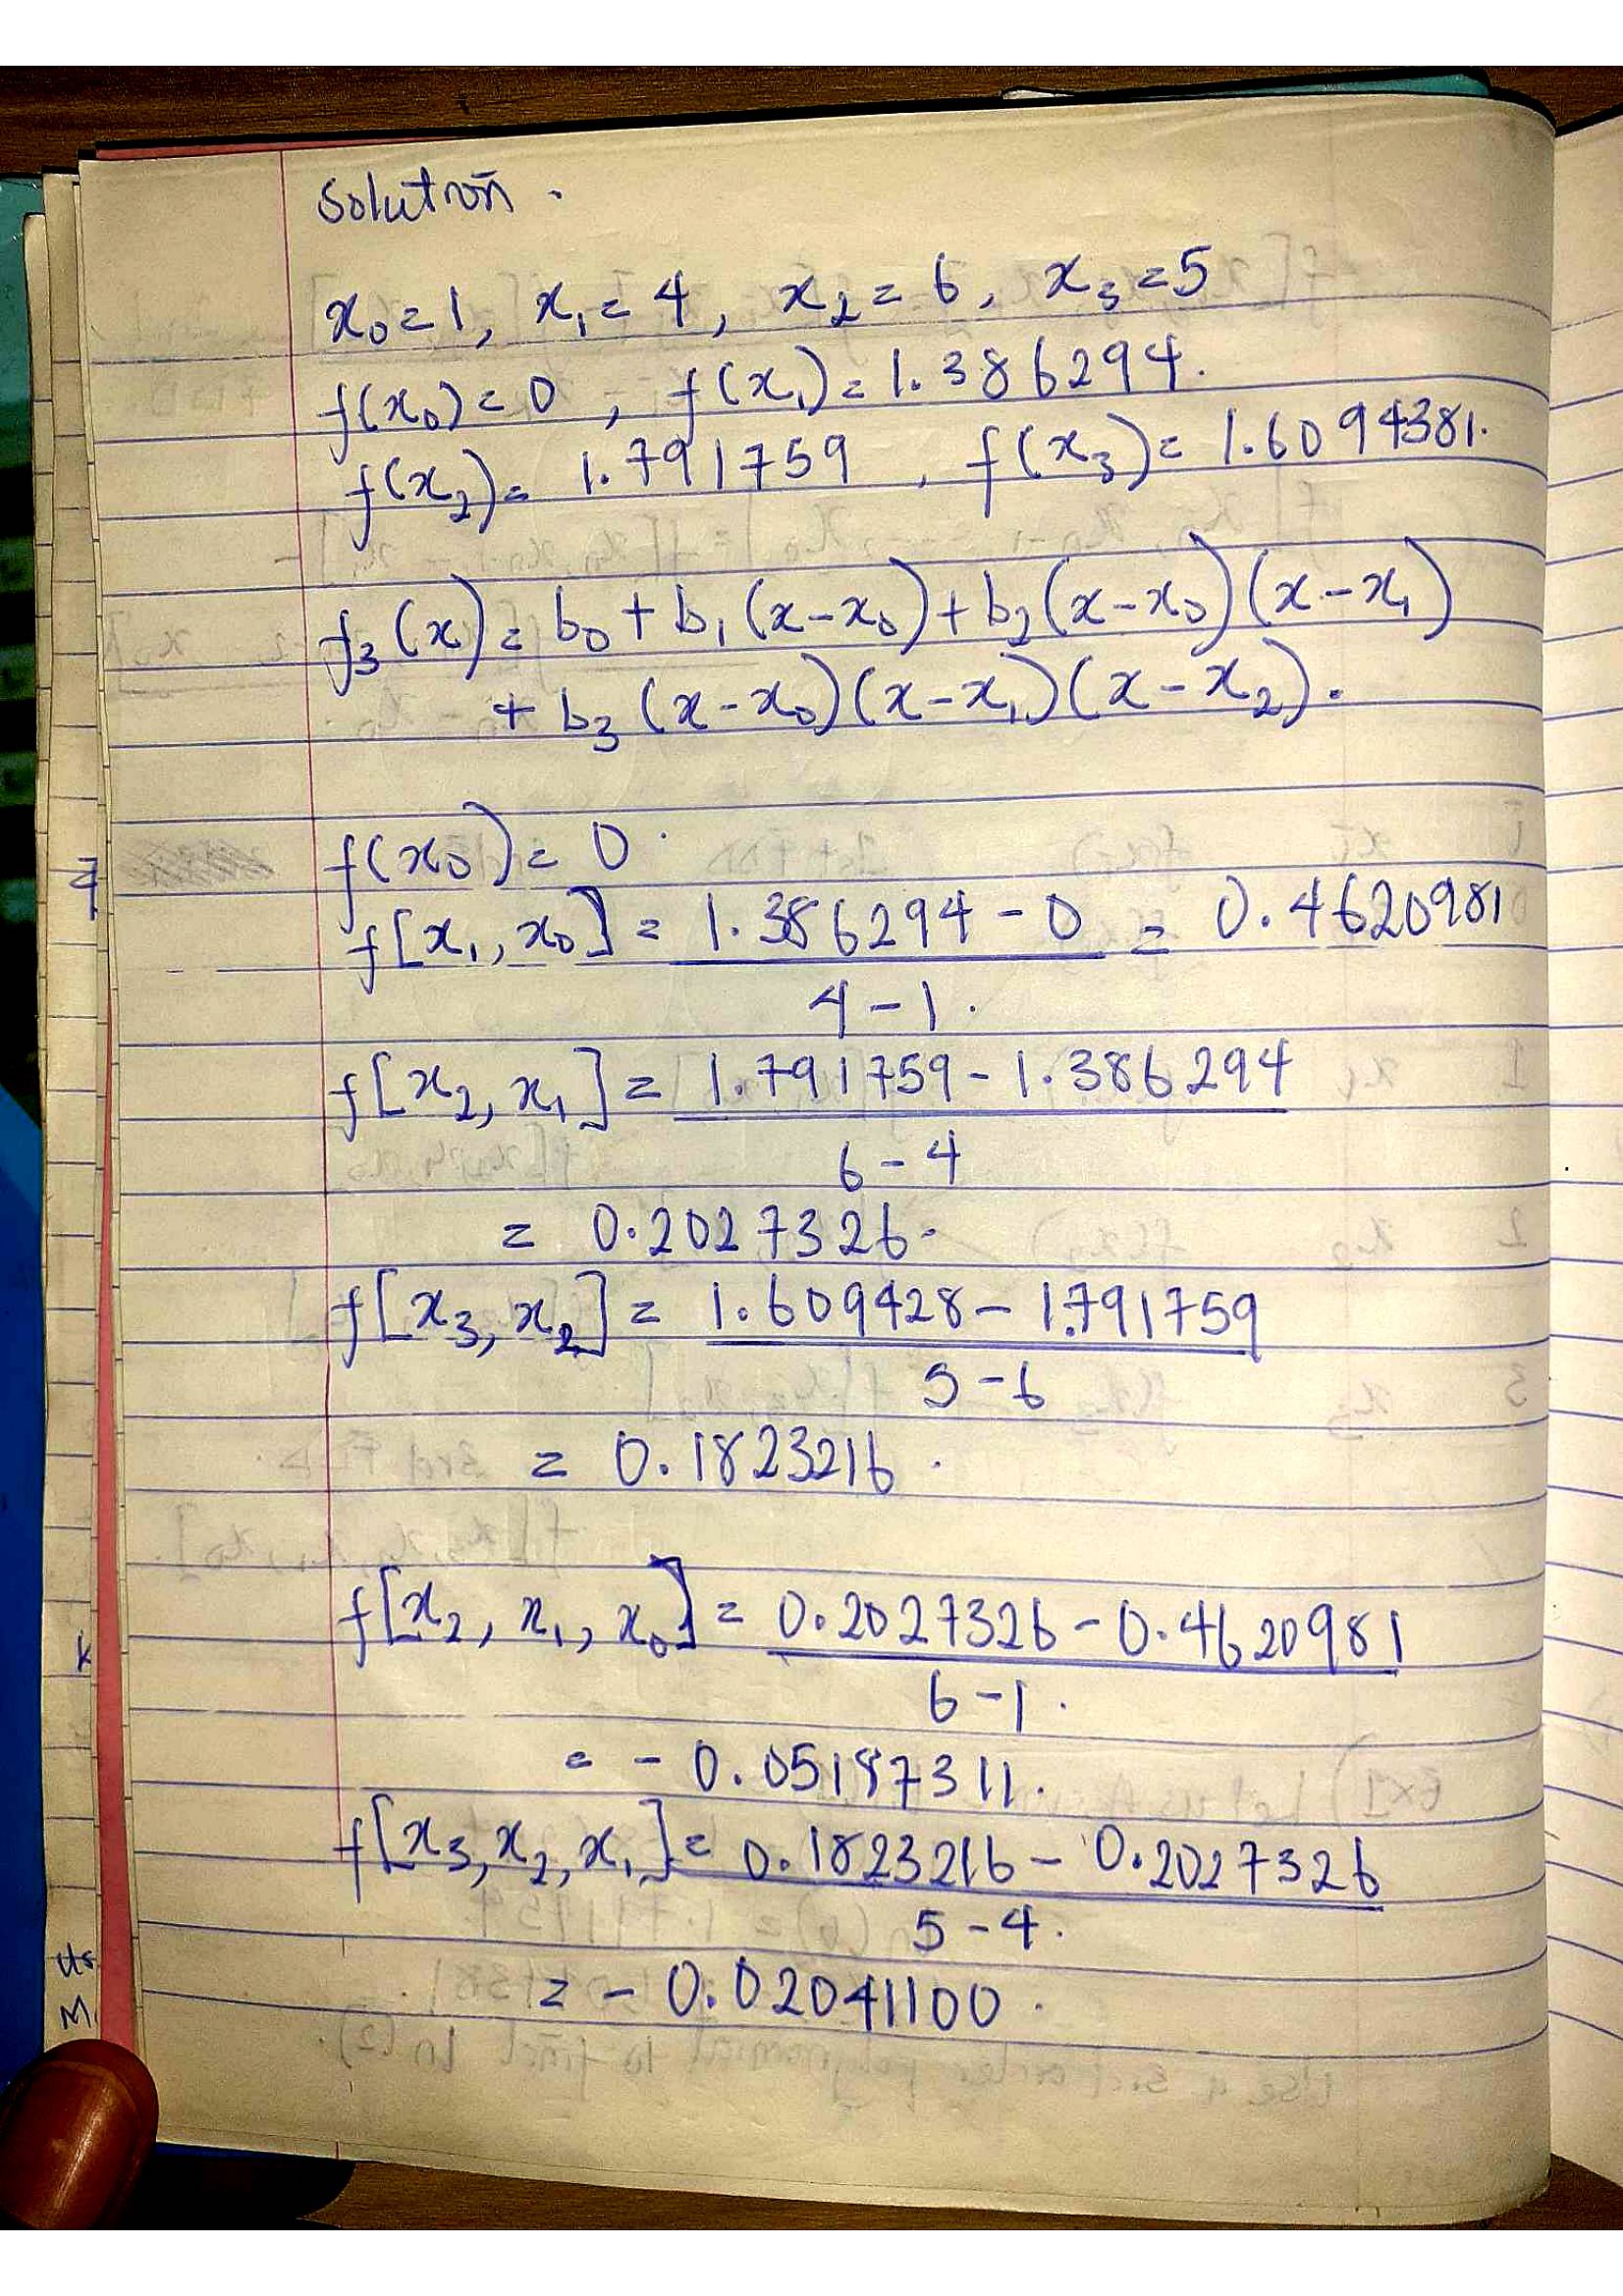 Solution.
x₀=1, x₁=4, x₂=6, x₃=5
f(x₀)=0, f(x₁)=1.386294.
f(x₂)=1.791759, f(x₃)=1.6094381.
f₃(x)=b₀+b₁(x-x₀)+b₂(x-x₀)(x-x₁)
+b₃(x-x₀)(x-x₁)(x-x₂).
f(x₀)=0.
f[x₁,x₀]=1.386294-0=0.4620981
4-1.
f[x₂,x₁]=1.791759-1.386294
6-4
=0.2027326.
f[x₃,x₂]=1.609428-1.791759
5-6
=0.1823216.
f[x₂,x₁,x₀]=0.2027326-0.4620981
6-1.
=-0.05187311.
f[x₃,x₂,x₁]=0.1823216-0.2027326
5-4.
=-0.02041100.